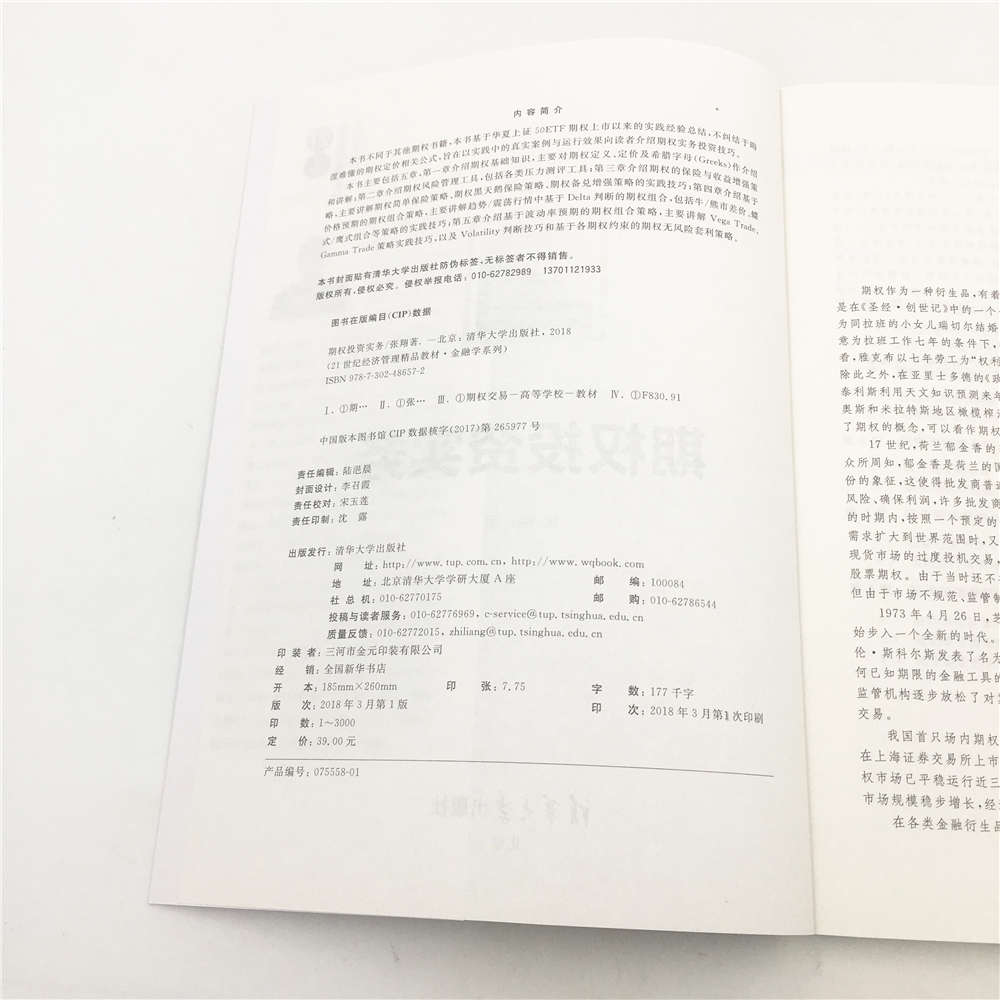 内 容 简 介
本书不同于其他期权书籍,本书基于华夏上证 50ETF 期权上市以来的实践经验总结,不纠结于晦
涩难懂的期权定价相关公式,旨在以实践中的真实案例与运行效果向读者介绍期权实务投资技巧。
本书主要包括五章,第一章介绍期权基础知识,主要对期权定义、定价及希腊字母(Greeks)作介绍
和讲解;第二章介绍期权风险管理工具,包括各类压力测评工具;第三章介绍期权的保险与收益增强策
略,主要讲解期权简单保险策略、期权黑天鹅保险策略、期权备兑增强策略的实践技巧;第四章介绍基于
价格预期的期权组合策略,主要讲解趋势/震荡行情中基于 Delta 判断的期权组合,包括牛/熊市差价、蝶
式/鹰式组合等策略的实践技巧;第五章介绍基于波动率预期的期权组合策略,主要讲解 Vega Trade、
Gamma Trade 策略实践技巧,以及 Volatility 判断技巧和基于各期权约束的期权无风险套利策略。
本书封面贴有清华大学出版社防伪标签,无标签者不得销售。
版权所有,侵权必究。侵权举报电话:010-62782989 13701121933
图书在版编目(CIP)数据
期权投资实务/张翔著. —北京:清华大学出版社,2018
(21 世纪经济管理精品教材·金融学系列)
ISBN 978-7-302-48657-2
Ⅰ. ①期… Ⅱ. ①张… Ⅲ. ①期权交易—高等学校—教材 Ⅳ. ①F830.91
中国版本图书馆 CIP 数据核字(2017)第 265977 号
责任编辑:陆浥晨
封面设计:李召霞
责任校对:宋玉莲
责任印制:沈 露
出版发行:清华大学出版社
网 址:http://www.tup.com.cn,http://www.wqbook.com
地 址:北京清华大学学研大厦 A 座 邮 编:100084
社 总 机:010-62770175 邮 购:010-62786544
投稿与读者服务:010-62776969,c-service@tup.tsinghua.edu.cn
质量反馈:010-62772015,zhiliang@tup.tsinghua.edu.cn
印 装 者:三河市金元印装有限公司
经 销:全国新华书店
开 本:185mm×260mm 印 张:7.75 字 数:177 千字
版 次:2018 年 3 月第 1 版 印 次:2018 年 3 月第 1 次印刷
印 数:1~3000
定 价:39.00 元
产品编号:075558-01
期权作为一种衍生品,有着
是在《圣经·创世记》中的一个
为同拉班的小女儿瑞切尔结婚
意为拉班工作七年的条件下,
看,雅克布以七年劳工为“权利
除此之外,在亚里士多德的《政
泰利斯利用天文知识预测来年
奥斯和米拉特斯地区橄榄榨
了期权的概念,可以看作期权
17 世纪,荷兰郁金香的
众所周知,郁金香是荷兰的国
份的象征,这使得批发商普遍
风险、确保利润,许多批发商
的时期内,按照一个预定的
需求扩大到世界范围时,又
现货市场的过度投机交易,
股票期权。由于当时还不
但由于市场不规范、监管制
1973 年 4 月 26 日,芝
始步入一个全新的时代。
伦·斯科尔斯发表了名为
何已知期限的金融工具的
监管机构逐步放松了对
交易。
我国首只场内期权
在上海证券交易所上市
权市场已平稳运行近三
市场规模稳步增长,经
在各类金融衍生品